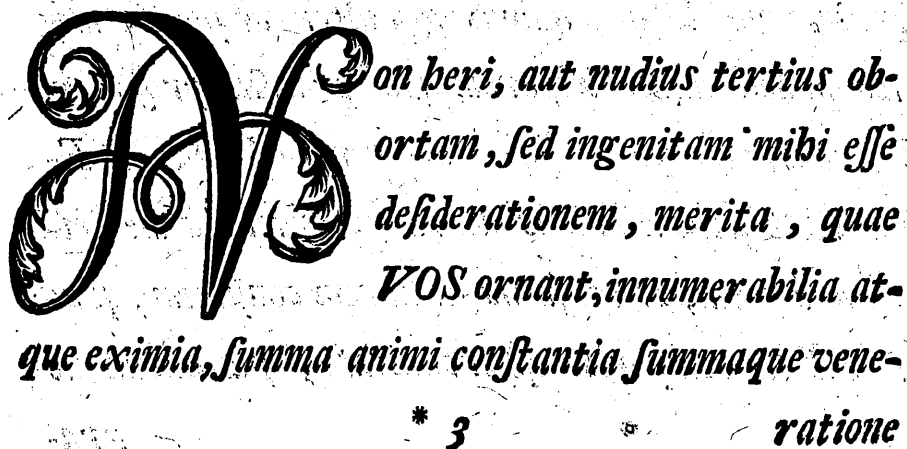 Non heri, aut nudius tertius ob-
ortam, ſed ingenitam mihi eſſe
deſiderationem, merita, quae
VOS ornant, innumerabilia at-
que eximia, ſumma animi conſtantia ſummaque vene-
* 3 ratione